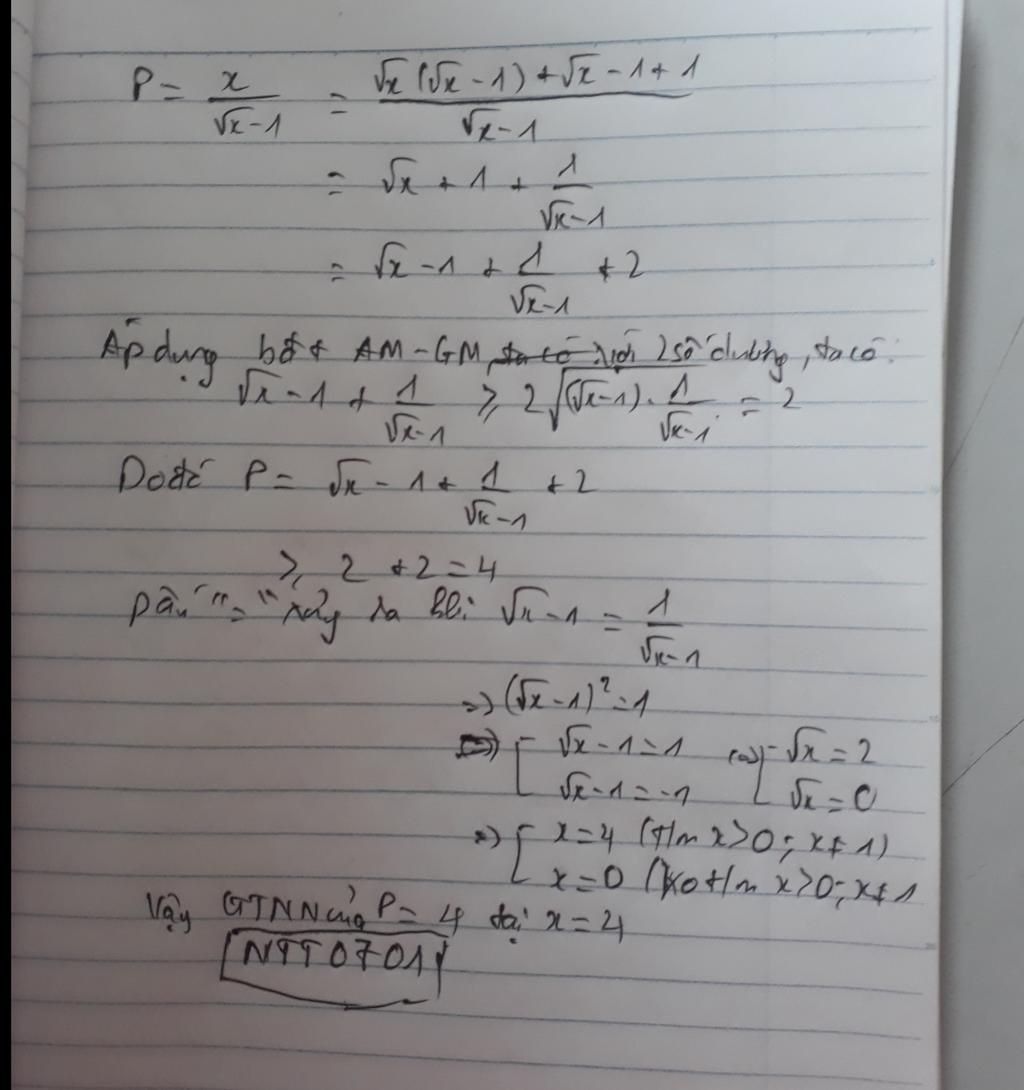 P = x/(√x-1) = (√x(√x-1)+√x-1+1)/(√x-1)
= √x + 1 + 1/(√x-1)
= √x - 1 + 1/(√x-1) + 2
Áp dụng bđt AM-GM, ta có với 2 số dương, ta có:
√x-1 + 1/(√x-1) ≥ 2√((√x-1).1/(√x-1)) = 2
Do đó P = √x - 1 + 1/(√x-1) + 2
≥ 2 + 2 = 4
Dấu "=" xảy ra khi √x-1 = 1/(√x-1)
=> (√x-1)² = 1
=> [ √x-1=1 (=) [ √x=2
√x-1=-1 √x=0
=> [ x=4 (t/m x>0; x≠1)
x=0 (Ko t/m x>0; x≠1
Vậy GTNN của P = 4 tại x = 4
NTT0701